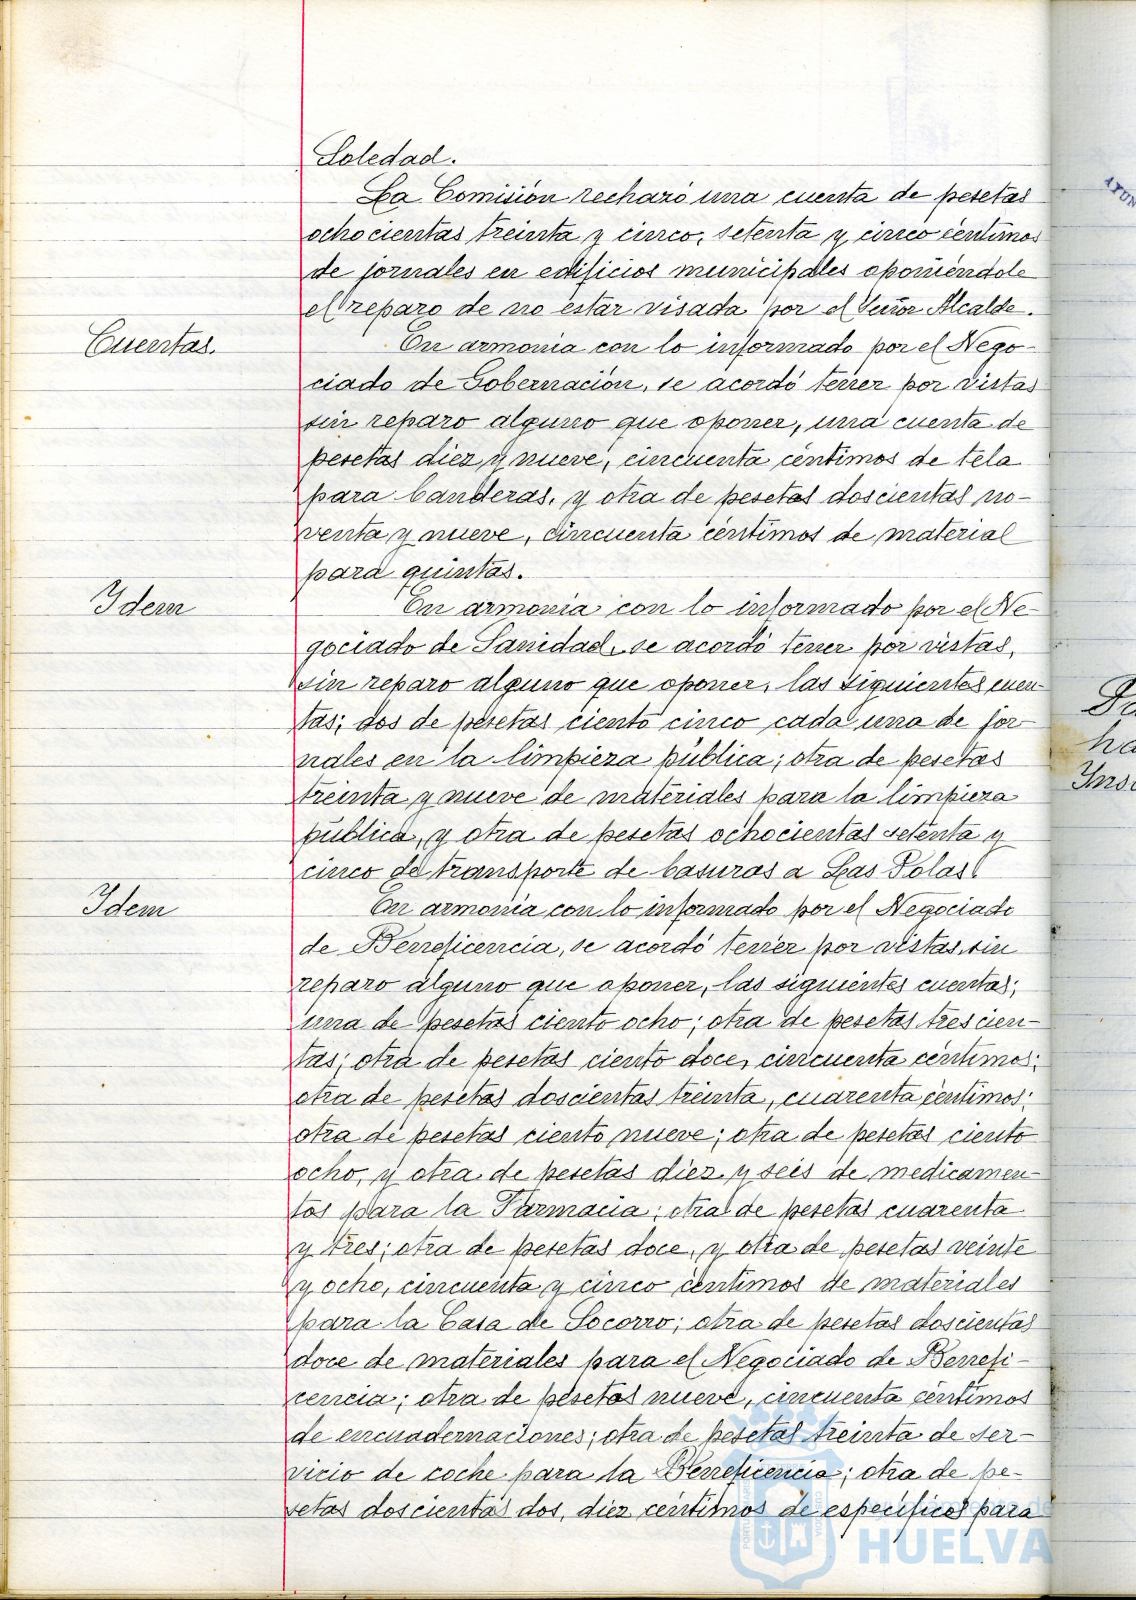 Soledad.
La Comisión rechazó una cuenta de pesetas
ochocientas treinta y cinco, setenta y cinco céntimos
de jornales en edificios municipales oponiéndole
el reparo de no estar visada por el Señor Alcalde.
Cuentas.
En armonia con lo informado por el Nego-
ciado de Gobernación, se acordó tener por vistas
sin reparo alguno que oponer, una cuenta de
pesetas diez y nueve, cincuenta céntimos de tela
para banderas, y otra de pesetas doscientas no-
venta y nueve, cincuenta céntimos de material
para quintas.
Idem
En armonia con lo informado por el Ne-
gociado de Sanidad, se acordó tener por vistas,
sin reparo alguno que oponer, las siguientes cuen-
tas; dos de pesetas ciento cinco cada una de jor-
nales en la limpieza pública; otra de pesetas
treinta y nueve de materiales para la limpieza
pública, y otra de pesetas ochocientas setenta y
cinco de transporte de basuras a Las Polas.
Idem
En armonia con lo informado por el Negociado
de Beneficencia, se acordó tener por vistas, sin
reparo alguno que oponer, las siguientes cuentas;
una de pesetas ciento ocho; otra de pesetas trescien-
tas; otra de pesetas ciento doce, cincuenta céntimos;
otra de pesetas doscientas treinta, cuarenta céntimos;
otra de pesetas ciento nueve; otra de pesetas ciento
ocho, y otra de pesetas diez y seis de medicamen-
tos para la Farmacia; otra de pesetas cuarenta
y tres; otra de pesetas doce, y otra de pesetas veinte
y ocho, cincuenta y cinco céntimos de materiales
para la Casa de Socorro; otra de pesetas doscientas
doce de materiales para el Negociado de Benefi-
cencia; otra de pesetas nueve, cincuenta céntimos
de encuadernaciones; otra de pesetas treinta de ser-
vicio de coche para la Beneficencia; otra de pe-
setas doscientas dos, diez céntimos de específicos para
HUELVA